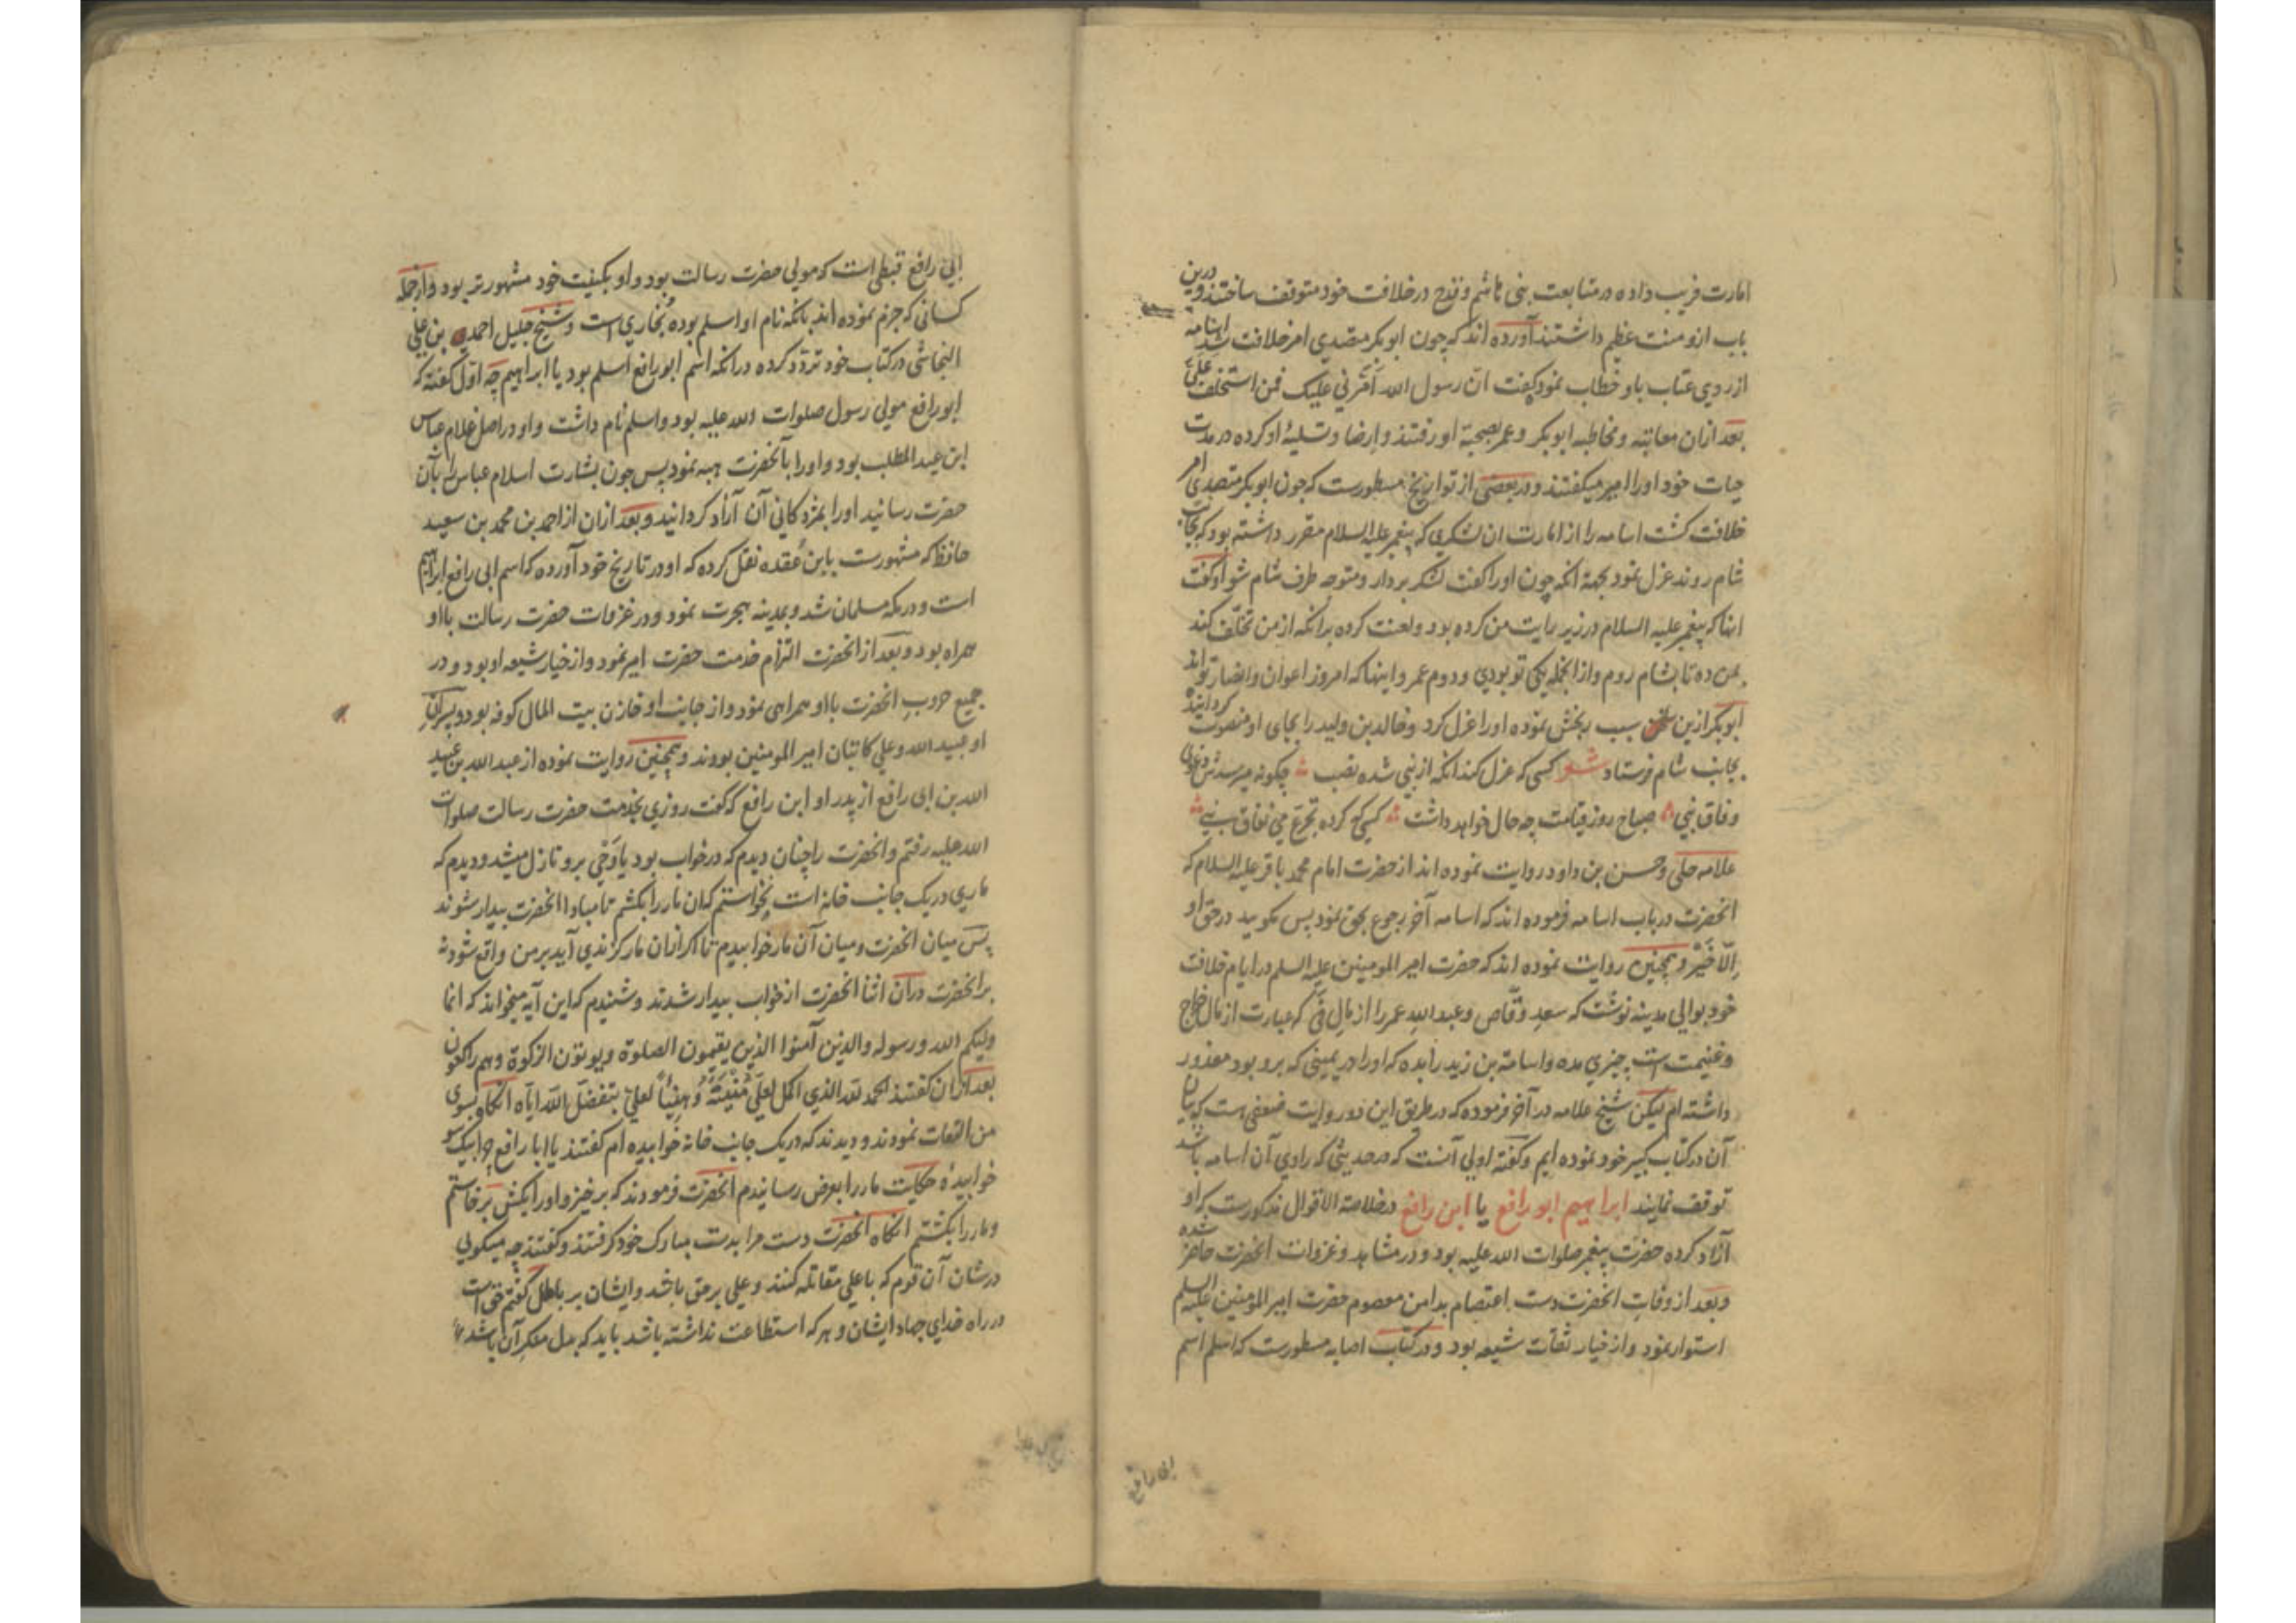 امارت فریب داده در متابعت بنی هاشم و قدح در خلافت خود متوقف ساختند و درین
باب ازو منت عظیم داشتند آورده اند که چون ابوبکر متصدی امر خلافت شد اسامه
از روی عتاب باو خطاب نمود گفت ان رسول الله أمّرني علیک فمن استخلفک علیّ
بعد ازان معاتبه و مخاطبه ابوبکر و عمر بصحبة او رفتند و ارضا و تسلیهٔ او کرده در مدت
حیات خود او را امیر میگفتند و در بعضی از تواریخ مسطورست که چون ابوبکر متصدی امر
خلافت گشت اسامه را از امارت ان لشکری که پیغمبر علیه السلام مقرر داشته بود که بجانب
شام روند عزل نمود بجهة آنکه چون او را گفت لشکر بردار و متوجه طرف شام شو او گفت
اینها که پیغمبر علیه السلام در زیر رایت من کرده بود و لعنت کرده برانکه از من تخلّف کند
بمن ده تا بشام روم و از انجمله یکی تو بودی و دوم عمر و اینها که امروز اعوان و انصار تو اند
ابوبکر ازین سخن سبب رنجش نموده او را عزل کرد و خالد بن ولید را بجای او منصوب گردانیده
بجانب شام فرستاد شعر کسی که عزل کند آنکه از نبی شده نصب چگونه میرسدش دعوی
وفاق نبی صباح روز قیامت چه حال خواهد داشت کسی که کرده تجرّع می نفاق نبی
علامه حلی و حسن بن داود روایت نموده اند از حضرت امام محمد باقر علیه السلام که
انحضرت در باب اسامه فرموده اند که اسامه آخر رجوع بحق نمود پس مگویید در حق او
الّا خیر و همچنین روایت نموده اند که حضرت امیر المومنین علیه السلم در ایام خلافت
خود بوالی مدینه نوشت که سعد وقّاص و عبدالله عمر را از مال فی که عبارت از مال خراج
و غنیمت است چیزی مده و اسامة بن زید را بده که او را در یمینی که برو بود معذور
داشته ام لیکن شیخ علامه در آخر فرموده که در طریق این دو روایت ضعفی است که بیان
آن در کتاب کبیر خود نموده ایم و گفته اولی آنست که در حدیثی که راوی آن اسامه باشد
توقف نمایند ابراهیم ابو رافع یا ابن رافع در خلاصة الاقوال مذکورست که او
آزاد کرده حضرت پیغمبر صلوات الله علیه بود و در مشاهد و غزوات انحضرت حاضر شده
و بعد از وفات انحضرت دست اعتصام بدامن معصوم حضرت امیر المومنین علیه السلم
استوار نمود و از خیار ثقات شیعه بود و در کتاب اصابه مسطورست که اسلم اسم
ابی رافع
ابی رافع قبطی است که مولی حضرت رسالت بود و او بکنیت خود مشهورتر بود و از جمله
کسانی که جزم نموده اند بانکه نام او اسلم بوده بُخاری است و شیخ جلیل احمد بن علی
النجاشی در کتاب خود تردّد کرده در انکه اسم ابو رافع اسلم بود یا ابراهیم چه اوّل گفته که
ابو رافع مولی رسول صلوات الله علیه بود و اسلم نام داشت و او در اصل غلام عباس
ابن عبد المطلب بود و او را بآنحضرت هبه نمود پس چون بشارت اسلام عباس را بآن
حضرت رسانید او را بمژدگانی آن آزاد گردانید و بعد ازان از احمد بن محمد بن سعید
حافظ که مشهورست بابن عُقده نقل کرده که او در تاریخ خود آورده که اسم ابی رافع ابراهیم
است و در مکه مسلمان شد و بمدینه هجرت نمود و در غزوات حضرت رسالت با او
همراه بود و بعد از انحضرت التزام خدمت حضرت امیر نمود و از خیار شیعه او بود و در
جمیع حروبِ انحضرت با او همراهی نمود و از جانب او خازن بیت المال کوفه بود و پسران
او عبید الله و علی کاتبان امیر المومنین بودند و همچنین روایت نموده از عبد الله بن عبید
الله بن ابی رافع از پدر او ابن رافع که گفت روزی بخدمت حضرت رسالت صلوات
الله علیه رفتم و انحضرت را چنان دیدم که در خواب بود یا وَحْی برو نازل میشد و دیدم که
ماری در یک جانب خانه است نخواستم که ان مار را بکشم تا مبادا انحضرت بیدار شوند
پس میان انحضرت و میان آن مار خوابیدم تا اگر ازان مار گزندی آید بر من واقع شود نه
بر انحضرت در آن اثنا انحضرت از خواب بیدار شدند و شنیدم که این آیه میخواند که انما
ولیکم الله و رسوله والذین آمنوا الذین یقیمون الصلوة و یوتون الزکوة و هم راکعون
بعد ازان گفتند الحمد لله الذی اکمل لعلیّ مُنْیَتَهُ وَ هنیئاً لعلیّ بتفضّل الله ایّاه انکاه بسوی
من التفات نمودند و دیدند که در یک جانب خانه خوابیده ام گفتند یا ابا رافع چرا بیک سو
خوابیدهٔ حکایت مار را بعرض رسانیدم انحضرت فرمودند که برخیز و او را بکش برخاستم
و مار را بکشتم انکاه انحضرت دست مرا بدست مبارک خود گرفتند و گفتند چه میگویی
در شان آن قوم که با علی مقاتله کنند و علی بر حق باشد و ایشان بر باطل گفتم حق است
در راه خدای جهاد ایشان و هر که استطاعت نداشته باشد باید که بدل منکر آن باشد